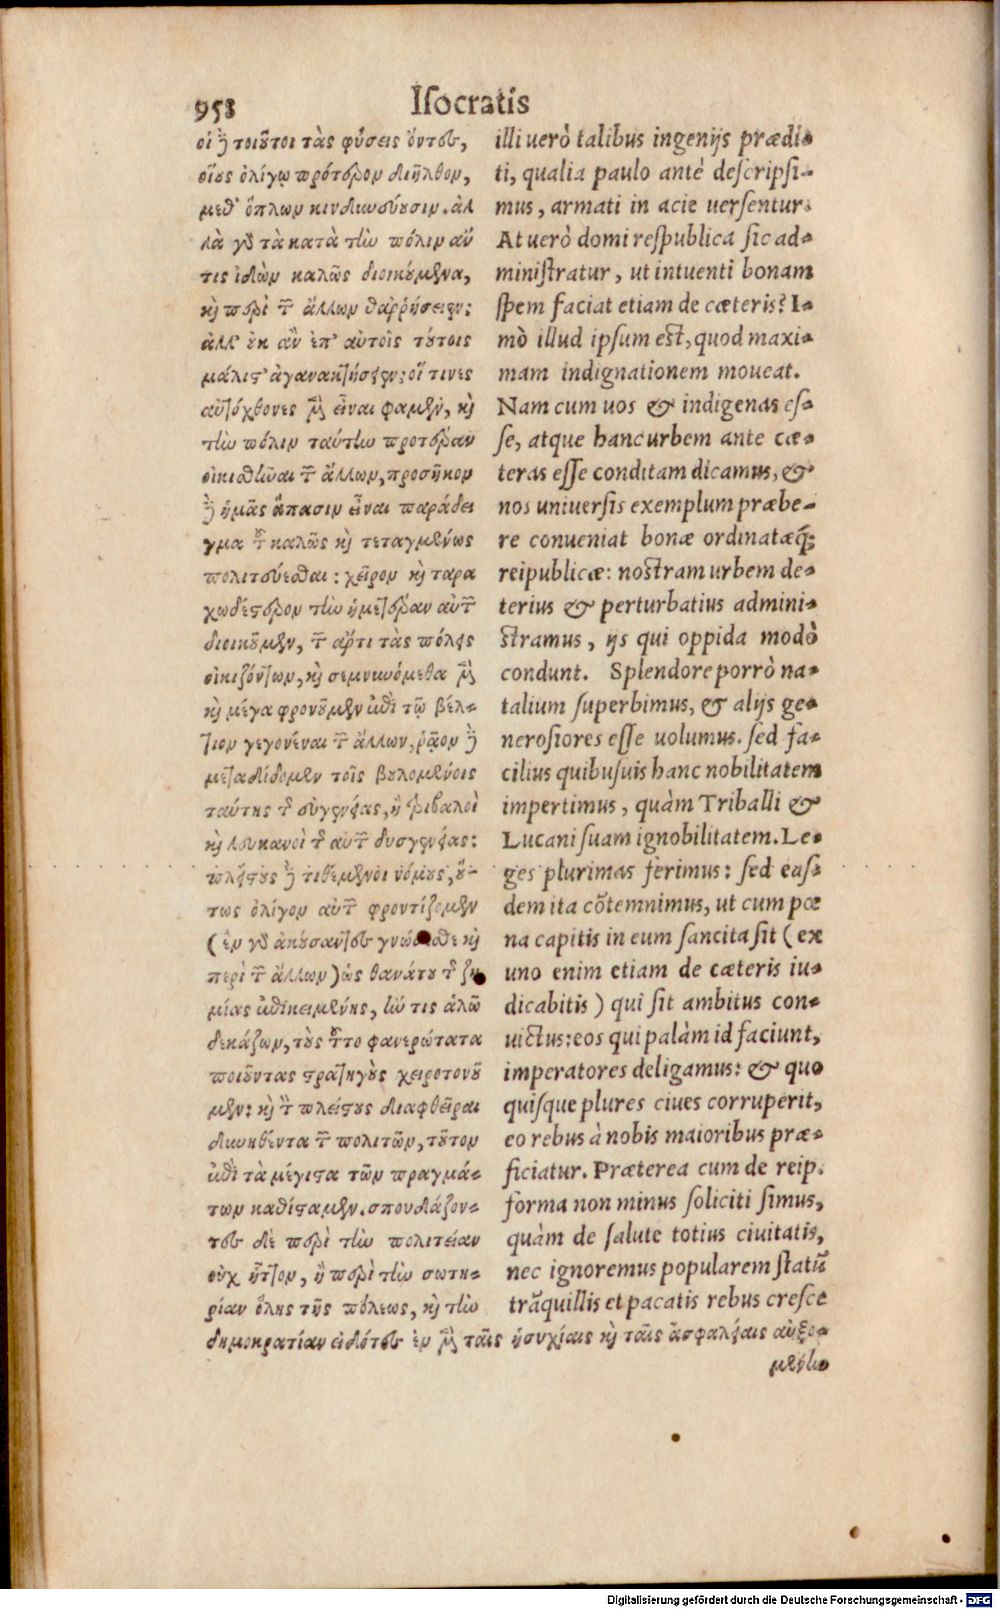 958 Iſocratis
οἱ ἢ τοιοῦτοι τὰς φύσεις ὄντες,
οἵους ὀλίγῳ πρότερον διῆλθον,
μεθ' ὅπλων κινδυνεύουσιν. ἀλ
λὰ γὸ τὰ κατὰ τὴν πόλιν ἄν
τις ἰδὼν καλῶς διοικούμενα,
καὶ περὶ τῶν ἄλλων θαρρήσειεν:
ἀλλ' οὐκ ἂν ἐπ' αὐτοῖς τούτοις
μάλιστ' ἀγανακτήσειεν: οἵ τινες
αὐτόχθονες μὲν εἶναι φαμὲν, καὶ
τὴν πόλιν ταύτην προτέραν
οἰκισθῆναι τῶν ἄλλων, προσῆκον
δὲ ἡμᾶς ἅπασιν εἶναι παράδει
γμα τοῦ καλῶς καὶ τεταγμένως
πολιτεύεσθαι: χεῖρον καὶ ταρα
χωδέστερον τὴν ἡμετέραν αὐτῶν
διοικοῦμεν, τῶν ἄρτι τὰς πόλεις
οἰκιζόντων, καὶ σεμνυνόμεθα μὲν
καὶ μέγα φρονοῦμεν ἐπὶ τῷ βέλ-
τιον γεγονέναι τῶν ἄλλων, ῥᾷον δὲ
μεταδίδομεν τοῖς βουλομένοις
ταύτης τῆς συγγενείας, ἢ Τριβαλοὶ
καὶ Λουκανοὶ τῆς αὐτῶν δυσγενείας:
πλείστους δὲ τιθέμενοι νόμους, οὕ-
τως ὀλίγον αὐτῶν φροντίζομεν
(ἓν γὸ ἀκούσαντες γνώσεσθε καὶ
περὶ τῶν ἄλλων) ὡς θανάτου τῆς ζη
μίας ἐπικειμένης, ἤν τις ἁλῶ
δεκάζων, τοὺς τοῦτο φανερώτατα
ποιοῦντας στρατηγοὺς χειροτονοῦ
μεν: καὶ τὸν πλείστους διαφθεῖραι
δυνηθέντα τῶν πολιτῶν, τοῦτον
ἐπὶ τὰ μέγιστα τῶν πραγμά-
των καθίσταμεν. σπουδάζον-
τες δὲ περὶ τὴν πολιτείαν
οὐχ ἧττον, ἢ περὶ τὴν σωτη-
ρίαν ὅλης τῆς πόλεως, καὶ τὴν
δημοκρατίαν εἰδότες ἐν μὲν ταῖς ἡσυχίαις καὶ ταῖς ἀσφαλείαις αὐξο-
μένην
illi uerò talibus ingenijs prædi-
ti, qualia paulo antè deſcripſi-
mus, armati in acie uerſentur.
At uerò domi reſpublica ſic ad-
miniſtratur, ut intuenti bonam
ſpem faciat etiam de cæteris? I-
mò illud ipſum eſt, quod maxi-
mam indignationem moueat.
Nam cum uos & indigenas eſ-
ſe, atque hanc urbem ante cæ-
teras eſſe conditam dicamus, &
nos uniuerſis exemplum præbe-
re conueniat bonæ ordinatæq́;
reipublicæ: noſtram urbem de-
terius & perturbatius admini-
ſtramus, ijs qui oppida modò
condunt. Splendore porrò na-
talium ſuperbimus, & alijs ge-
neroſiores eſſe uolumus. ſed fa-
cilius quibuſuis hanc nobilitatem
impertimus, quàm Triballi &
Lucani ſuam ignobilitatem. Le-
ges plurimas ferimus: ſed eaſ-
dem ita cõtemnimus, ut cum pœ
na capitis in eum ſancita ſit (ex
uno enim etiam de cæteris iu-
dicabitis) qui ſit ambitus con-
uictus: eos qui palàm id faciunt,
imperatores deligamus: & quo
quiſque plures ciues corruperit,
eo rebus à nobis maioribus præ-
ficiatur. Præterea cum de reip.
forma non minus ſoliciti ſimus,
quàm de ſalute totius ciuitatis,
nec ignoremus popularem ſtatũ
trãquillis et pacatis rebus creſce
Digitalisierung gefördert durch die Deutsche Forschungsgemeinschaft - DFG